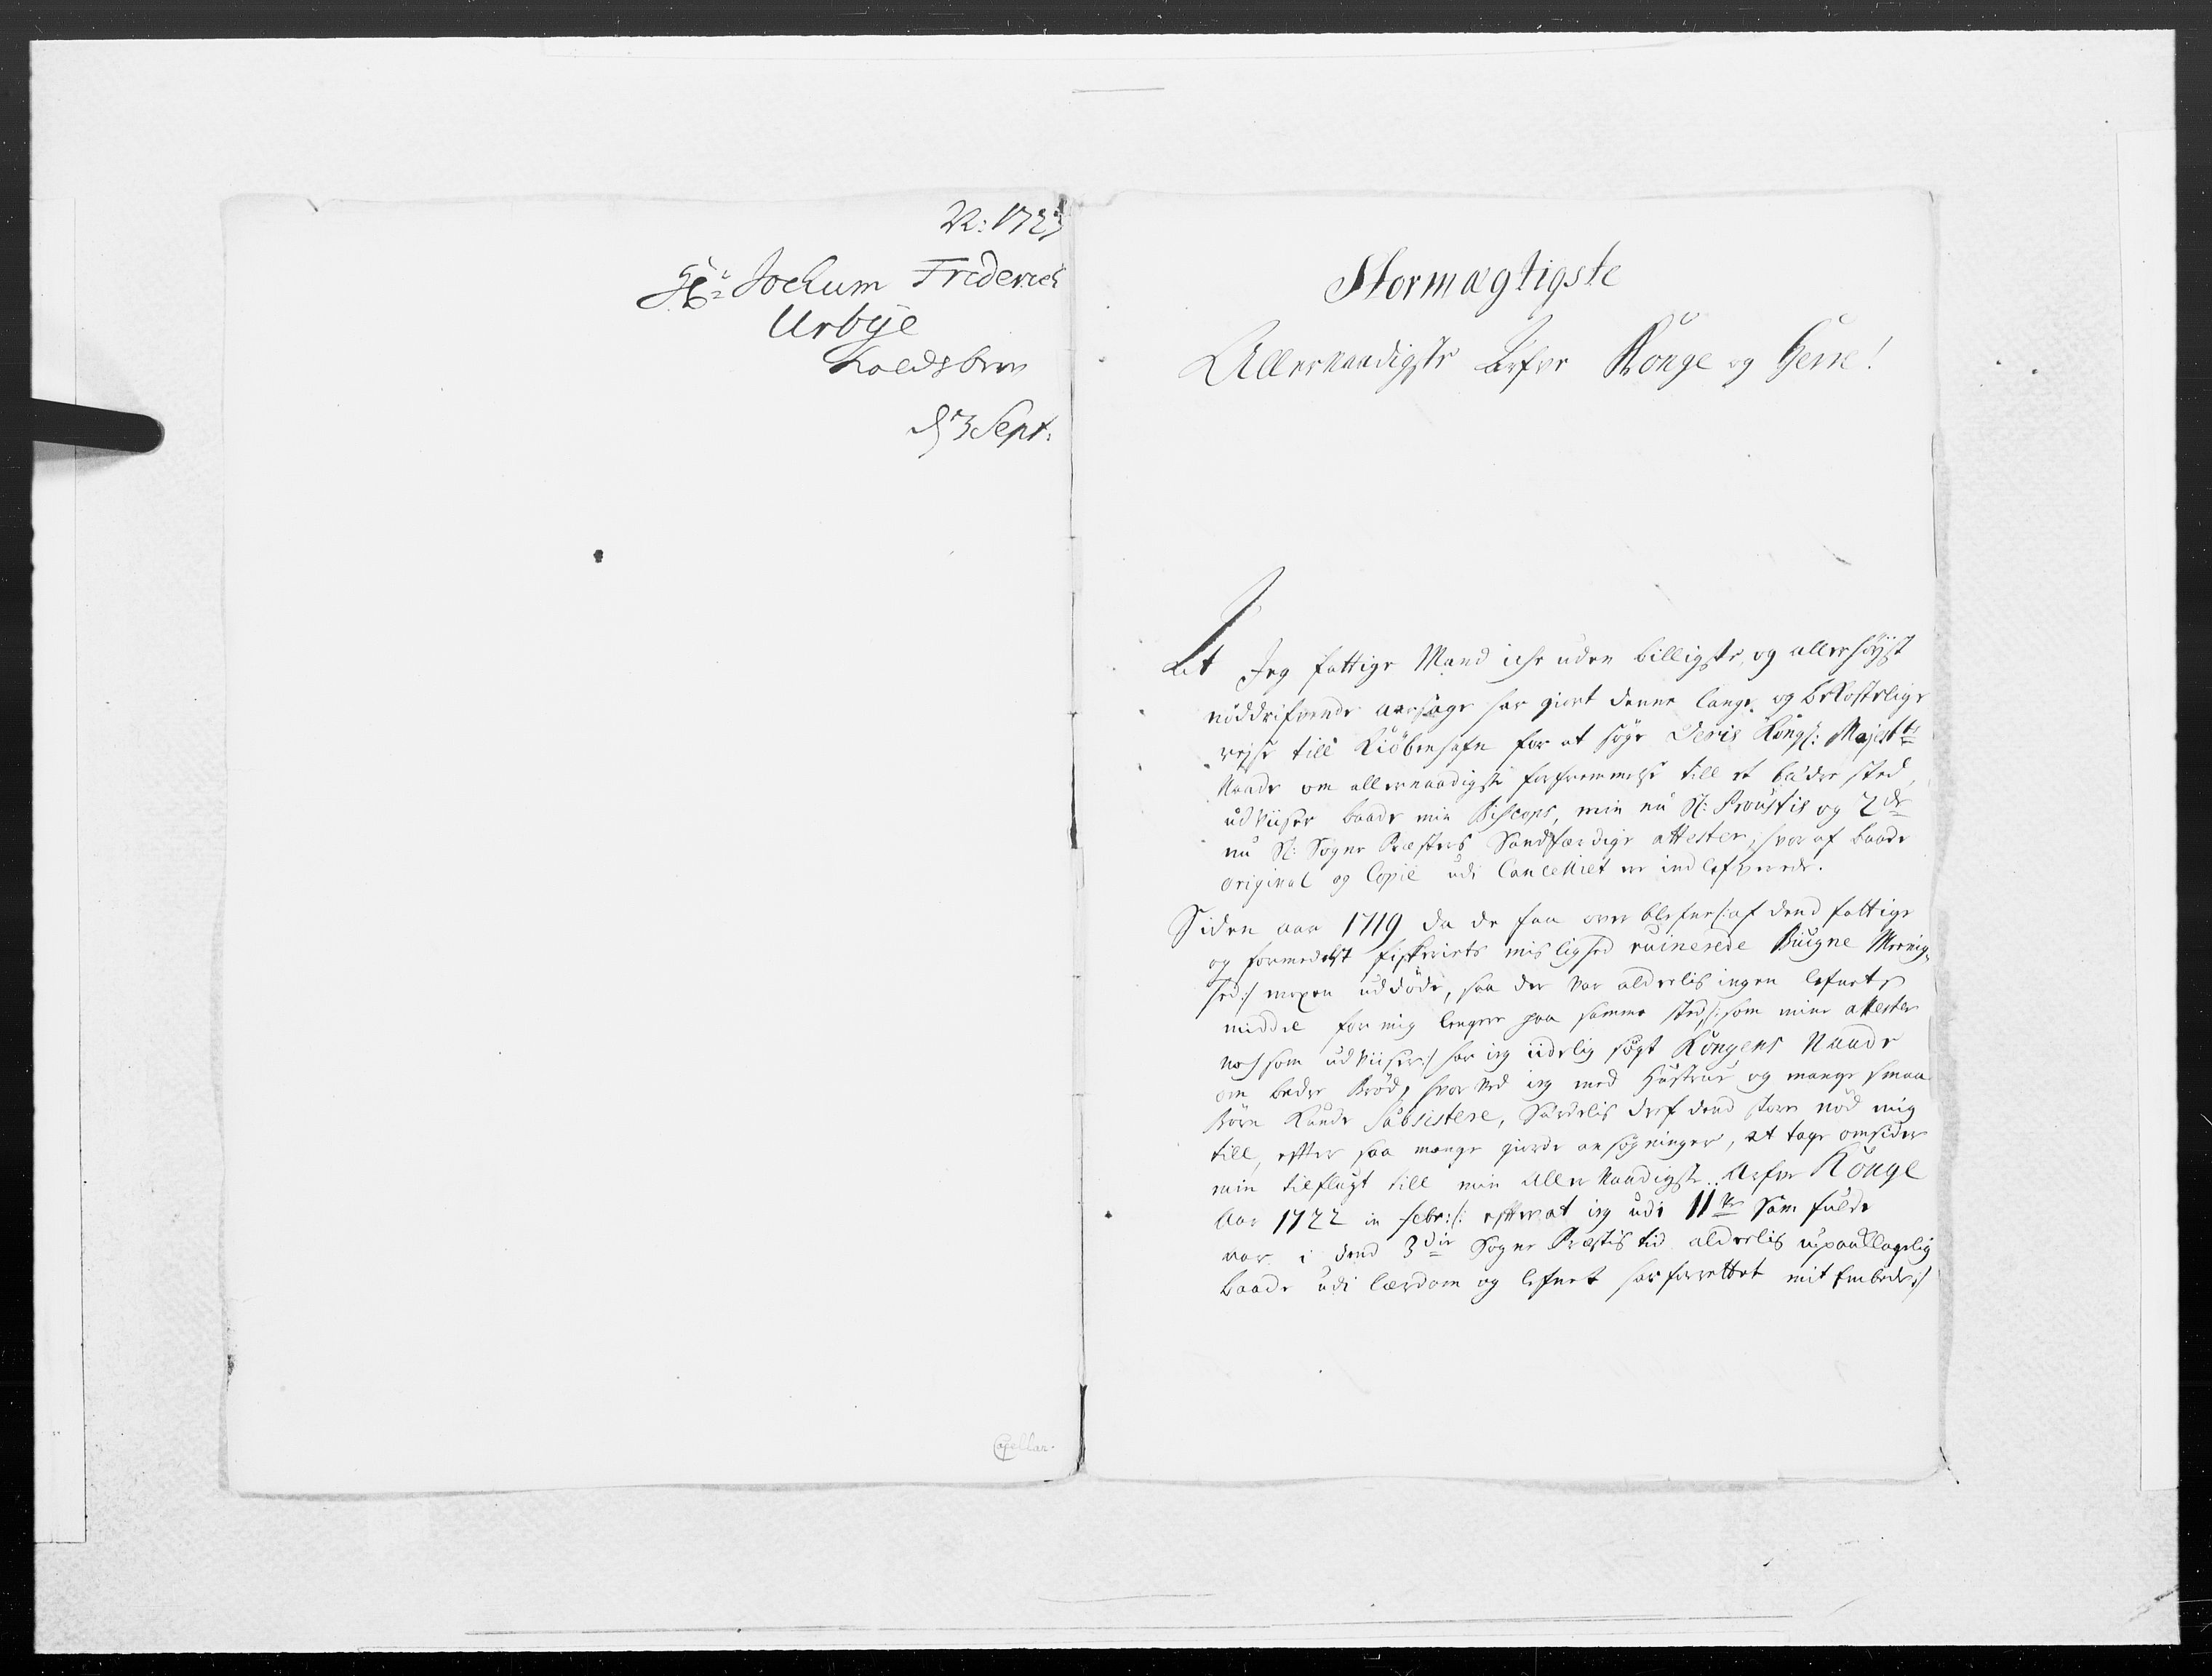 1723
Hr: Jochum Friderich
Urbye
d 3 Sept:
Capellan.
Stormægtigste
Allernaadigste Arfve Konge og Herre!
At Jeg fattige Mand iche uden billigste, og allerhøyst
nøddrifvende aarsage har giort denne lange og bekostelige
rejse till Kiøbenhafn for at søge Deris Kongl: Majestts
Naade om allernaadigste forfremmelse till et bædre sted,
udviiser baade min Biscops, min nu Sl: Proustis og 2de
nu Sl: Sogne Præsters Sandfærdige attester, hvor af baade
original og Copie udi Cancelliet er indlefverede.
Siden aar 1719 da de faa over blefne /: af dend fattige
og formedelst fiskeriets mislighed ruinerede Buigne Meenig-
hed :/ mexen uddøde, saa der var alderlis ingen lefnets
middel for mig lengere paa samme sted /: som mine attester
noch som udviiser :/ har jeg iidelig søgt Kongens Naade
om bedre Brød, hvor ved jeg med Hustrue og mange smaa
børn kunde Subsistere, Særdelis dref dend store nød mig
till, efter saa mange giorde ansøgninger, at tage omsider
min tilflugt till min Aller Naadigste Arfve Konge
Aar 1722 in febr: /: effter at jeg udi 11ve Sam fulde
aar i dend 3die Sogne Præstis tid alderlis upaaklagelig
baade udi lærdom og lefnet har forrettet mit Embede :/